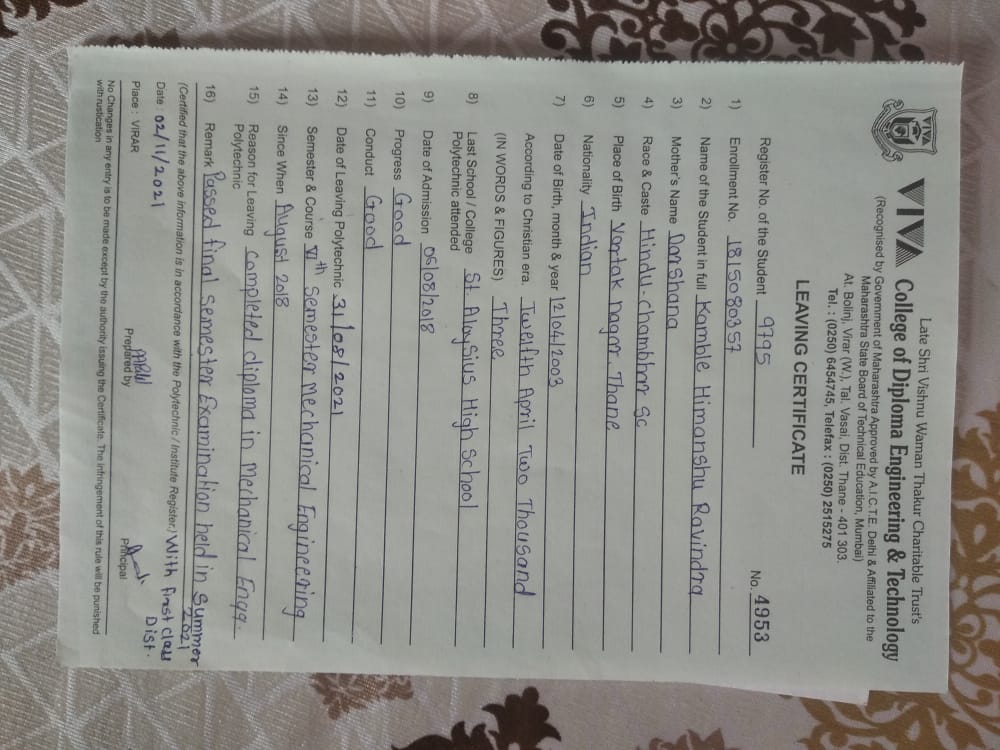 VIVA
Late Shri Vishnu Waman Thakur Charitable Trust's
VIVA College of Diploma Engineering & Technology
(Recognised by Government of Maharashtra Approved by A.I.C.T.E. Delhi & Affiliated to the
Maharashtra State Board of Technical Education, Mumbai)
At. Bolinj, Virar (W.), Tal. Vasai, Dist. Thane - 401 303.
Tel. : (0250) 6454745, Telefax : (0250) 2515275
LEAVING CERTIFICATE
Register No. of the Student 9795 No. 4953
1) Enrollment No. 1815080357
2) Name of the Student in full Kamble Himanshu Ravindra
3) Mother's Name Darshana
4) Race & Caste Hindu-chambhar SC
5) Place of Birth Vartak nagar, Thane
6) Nationality Indian
7) Date of Birth, month & year 12/04/2003
According to Christian era. Twelfth April Two Thousand
(IN WORDS & FIGURES) Three
8) Last School / College St. Aloysius High School
Polytechnic attended
9) Date of Admission 06/08/2018
10) Progress Good
11) Conduct Good
12) Date of Leaving Polytechnic 31/08/2021
13) Semester & Course VIth Semester Mechanical Engineering
14) Since When August 2018
15) Reason for Leaving completed diploma in Mechanical Engg.
Polytechnic
16) Remark Passed final semester Examination held in Summer
2021
(Certified that the above information is in accordance with the Polytechnic / Institute Register.) With first class
Dist.
Date : 02/11/2021
Place : VIRAR
Prepared by Principal
No Changes in any entry is to be made except by the authority issuing the Certificate. The infringement of this rule will be punished
with rustication